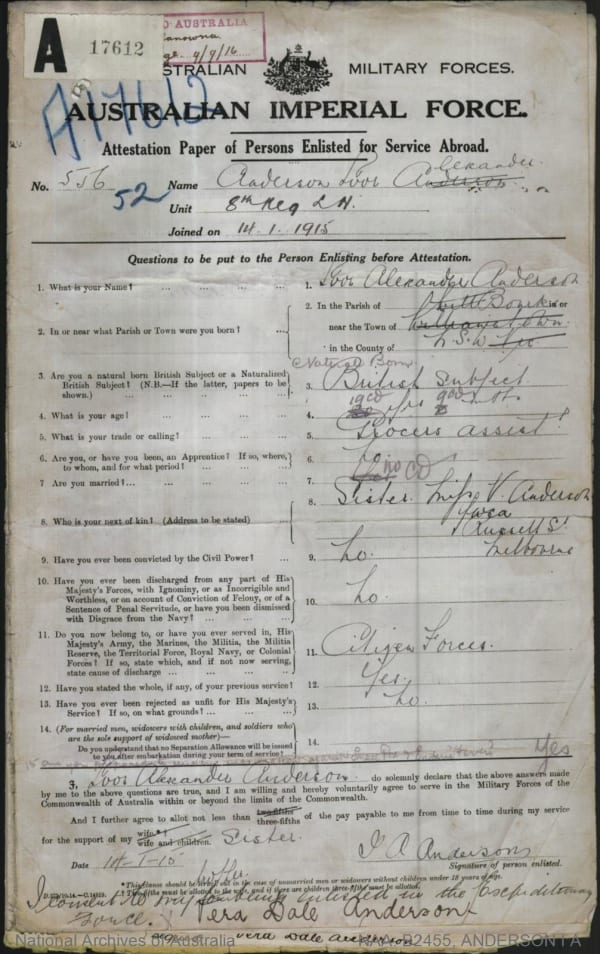 A 17612
AUSTRALIA
4/9/16
A17612
AUSTRALIAN MILITARY FORCES.
AUSTRALIAN IMPERIAL FORCE.
Attestation Paper of Persons Enlisted for Service Abroad.
No. 556 Name Anderson Ivor Alexander Anderson
52
Unit 8th Reg L H.
Joined on 14.1.1915
Questions to be put to the Person Enlisting before Attestation.
1. What is your Name? ... ... ... ... 1. Ivor Alexander Anderson
2. In or near what Parish or Town were you born? ... 2. In the Parish of in or
near the Town of Williamstown
in the County of N.S.W Vic
Natural Born
3. Are you a natural born British Subject or a Naturalized British Subject? (N.B.—If the latter, papers to be shown.) ... ... ... ... 3. British Subject
4. What is your age? ... ... ... ... 4. 19 yrs 9 mths
5. What is your trade or calling? ... ... ... 5. Grocers assist
6. Are you, or have you been, an Apprentice? If so, where, to whom, and for what period? ... ... ... 6. No
7 Are you married? ... ... ... ... 7. no CD
8. Who is your next of kin? (Address to be stated) ... 8. Sister Miss V. Anderson
ywca
Russell St
Melbourne
9. Have you ever been convicted by the Civil Power? ... 9. No.
10. Have you ever been discharged from any part of His Majesty's Forces, with Ignominy, or as Incorrigible and Worthless, or on account of Conviction of Felony, or of a Sentence of Penal Servitude, or have you been dismissed with Disgrace from the Navy? ... ... ... 10. No.
11. Do you now belong to, or have you ever served in, His Majesty's Army, the Marines, the Militia, the Militia Reserve, the Territorial Force, Royal Navy, or Colonial Forces? If so, state which, and if not now serving, state cause of discharge ... ... ... ... 11. Citizen Forces.
12. Have you stated the whole, if any, of your previous service? 12. Yes.
13. Have you ever been rejected as unfit for His Majesty's Service? If so, on what grounds? ... ... ... 13. No.
14. (For married men, widowers with children, and soldiers who are the sole support of widowed mother)—
Do you understand that no Separation Allowance will be issued to you after embarkation during your term of service? ... 14.
Yes
I, Ivor Alexander Anderson do solemnly declare that the above answers made
by me to the above questions are true, and I am willing and hereby voluntarily agree to serve in the Military Forces of the
Commonwealth of Australia within or beyond the limits of the Commonwealth.
And I further agree to allot not less than two-fifths three-fifths of the pay payable to me from time to time during my service
for the support of my wife wife and children. Sister.
I A Anderson
Signature of person enlisted.
Date 14-1-15
*This clause should be struck out in the case of unmarried men or widowers without children under 18 years of age.
†Two fifths must be allotted to the wife, and if there are children three-fifths must be allotted.
I consent to my brother being enlisted in the Expeditionary
Force. Vera Dale Anderson
Vera Dale Anderson
National Archives of Australia NAA: B2455, ANDERSON I A